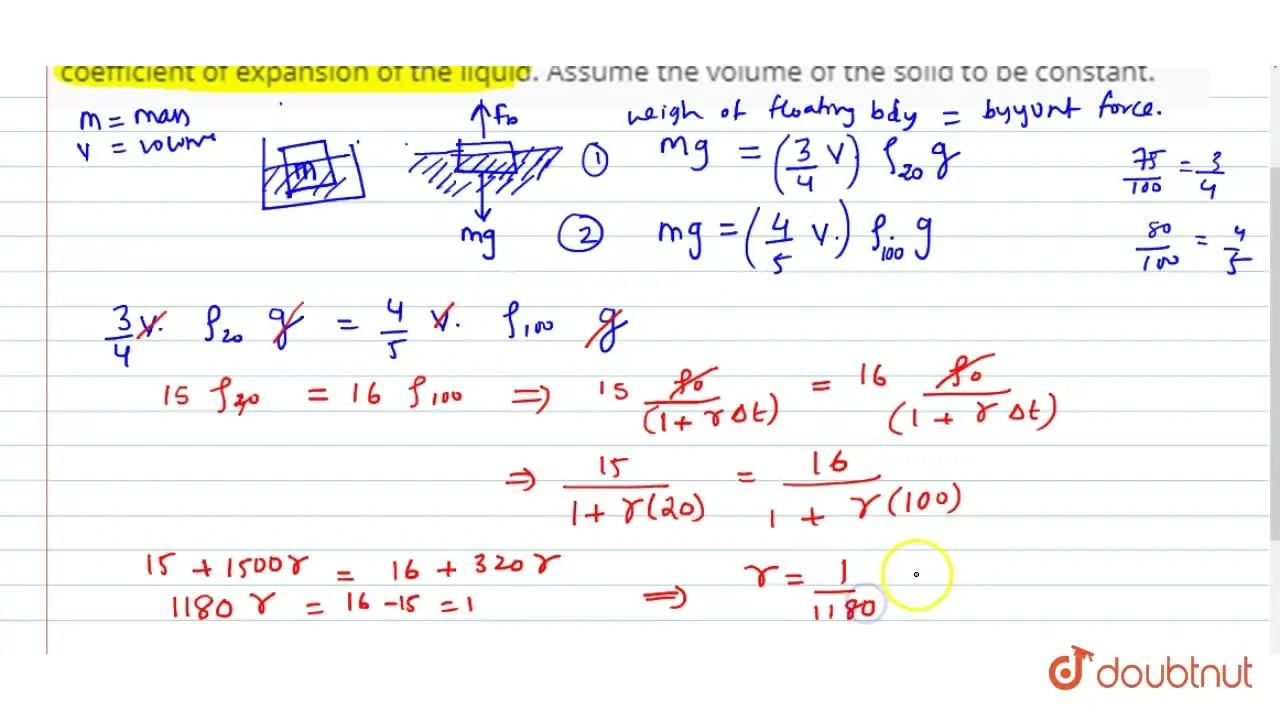 coefficient of expansion of the liquid. Assume the volume of the solid to be constant.
m = mass
v = volume
m
Fb
mg
weigh of floating bdy = byyunt force.
① mg = (3/4 v) ρ20 g
75/100 = 3/4
② mg = (4/5 v.) ρ100 g
80/100 = 4/5
3/4 v. ρ20 g = 4/5 v. ρ100 g
15 ρ20 = 16 ρ100 ⇒ 15 ρ0/(1 + γ Δt) = 16 ρ0/(1 + γ Δt)
⇒ 15/(1 + γ(20)) = 16/(1 + γ(100))
15 + 1500γ = 16 + 320γ
1180 γ = 16 - 15 = 1 ⇒ γ = 1/1180
doubtnut